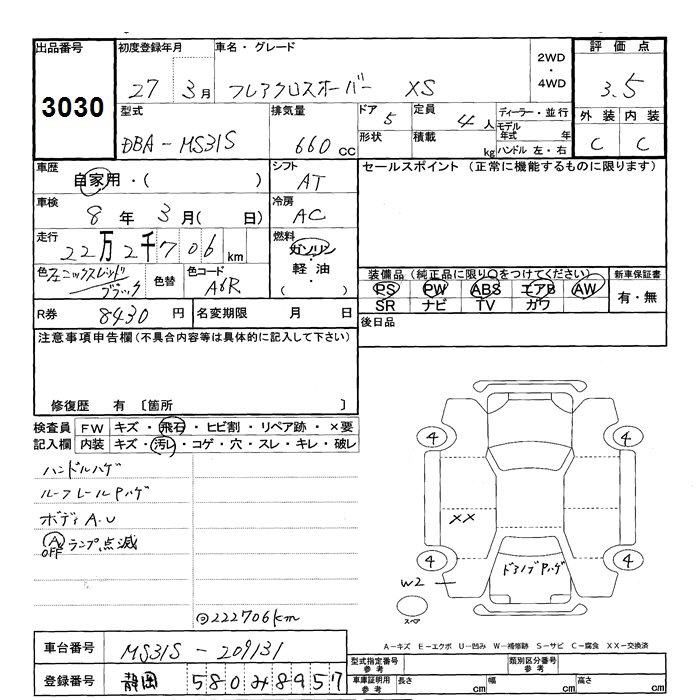 出品番号
3030
初度登録年月
27 3月
車名・グレード
フレアクロスオーバー XS
2WD
・
4WD
評価点
3.5
型式
DBA-MS31S
排気量
660cc
ドア 5
形状
定員 4人
積載 kg
ディーラー・並行
モデル年式 年
ハンドル 左・右
外装 内装
C C
車歴
自家用・( )
シフト
AT
セールスポイント (正常に機能するものに限ります)
車検
8年 3月( 日)
冷房
AC
走行
22万2千706km
燃料
ガソリン
・
軽油
・
( )
色 フェニックスレッド/ブラック
色替
色コード
A6R
装備品(純正品に限り○をつけてください)
PS PW ABS エアB AW
SR ナビ TV ガワ
新車保証書
有・無
R券 8430円
名変期限 月 日
後日品
注意事項申告欄(不具合内容等は具体的に記入して下さい)
修復歴 有 〔箇所 〕
検査員記入欄
FW キズ・飛石・ヒビ割・リペア跡・×要
内装 キズ・汚レ・コゲ・穴・スレ・キレ・破レ
ハンドルハゲ
ルーフレールPハゲ
ボディA.U
A OFFランプ点滅
222706km
4 4
XX
4 4
W2
ドアノブPハゲ
スペア
A-キズ E-エクボ U-凹み W-補修跡 S-サビ C-腐食 XX-交換済
車台番号 MS31S-209131
登録番号 静岡 580み8957
型式指定番号
参考
類別区分番号
参考
車庫証明用
参考
長さ cm 幅 cm 高さ cm